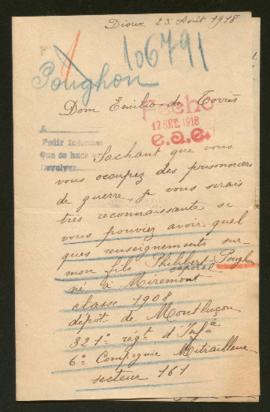 Dioux 23 Août 1918
106791
Poughon
Dom Emilio de Torrès
fiche
12 SET. 1918
e.a.e.
A
Pedir informes
Que se hace
Devolver
Sachant que vous
vous ocupez des prisonniers
de guerre je vous serais
très reconnaissante si
vous pouviez avoir quel
ques renseignements sur
mon fils Philibert Pough
caporal
né à Miremont
classe 1908
dépôt de Montluçon
321e régt d'Infie
6e Compagnie Mitrailleuse
secteur 161